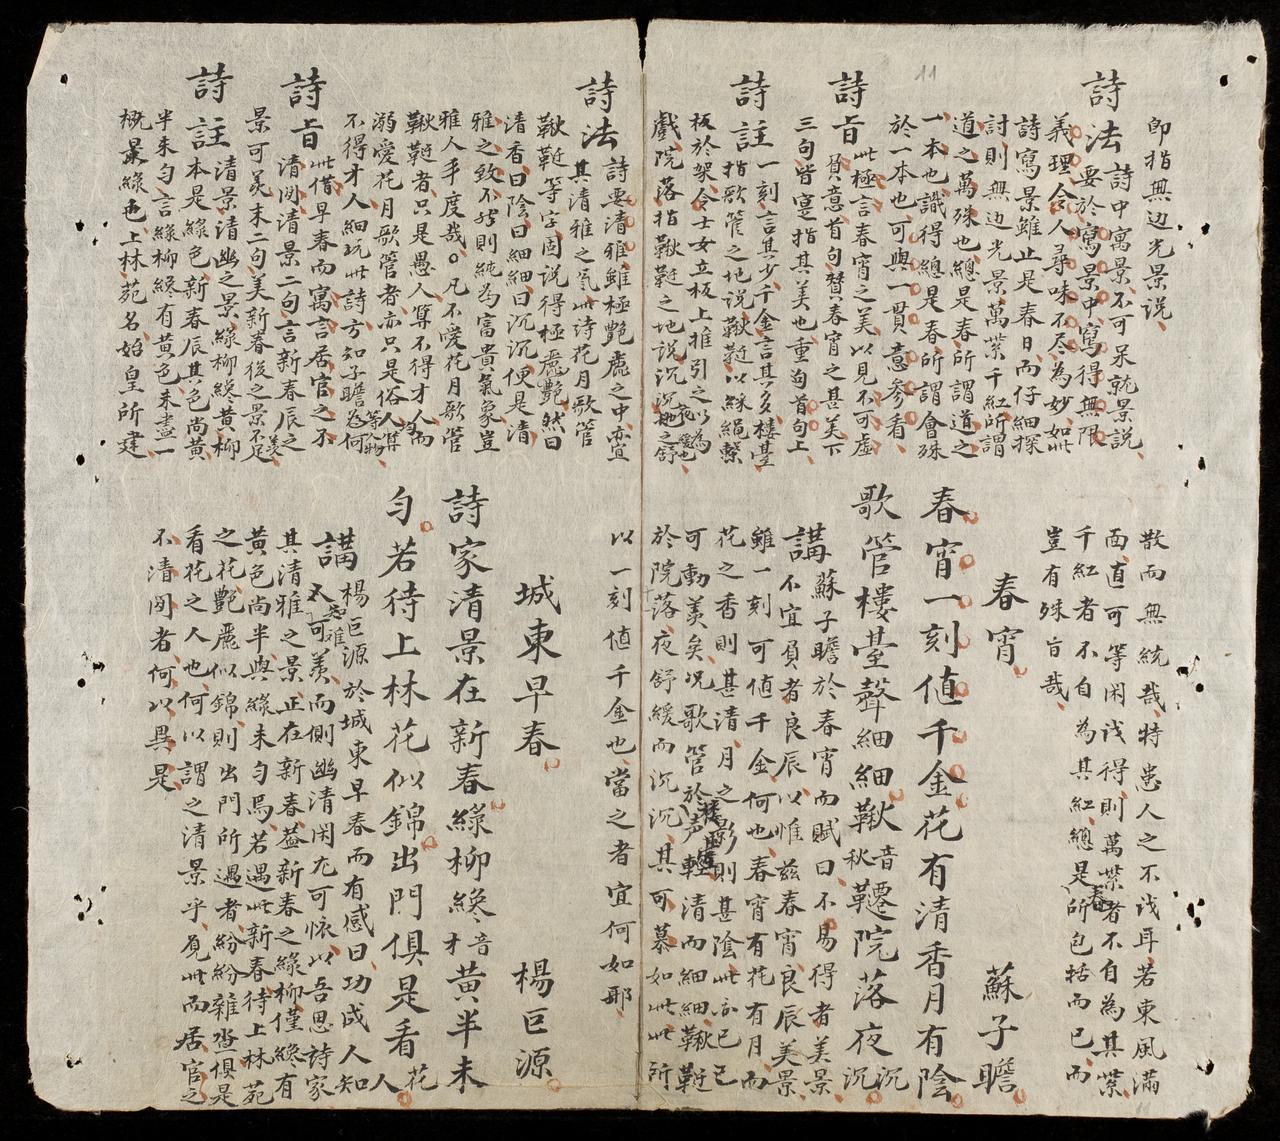 即指無边光景說
詩法 詩中寓景不可呆就景説
要於寓景中寓得無限
義理令人尋味不尽為妙如此
詩寫景雖止是春日而仔細探
討則無边光景萬紫千紅所謂
道之萬殊也總是春所謂道之
一本也識得總是春所謂會殊
於一本也可與一貫意參看
詩旨 此極言春宵之美以見不可虛
負意首句賛春宵之甚美下
三句皆寔指其美也重句首句上
詩註 一刻言其少千金言其多樓䑓
指歌管之地説鞦韆以綵繩繫
板於架令士女立板上推引之以為
戲院落指鞦韆之地説沉沉
散而無統哉特患人之不识耳若東風满
面直可等闲识得則萬紫者不自為其紫
千紅者不自為其紅總是春所包括而已而
豈有殊旨哉
春宵 蘇子瞻
春宵一刻值千金花有清香月有陰
歌管樓䑓聲細細鞦音秋韆院落夜沉沉
講 蘇子瞻於春宵而賦曰不易得者美景
不宜負者良辰以惟兹春宵良辰美景
雖一刻可值千金何也春宵有花有月而
花之香則甚清月之影則甚陰此亦已
可動美矣况歌管於樓䑓声輕清而細細鞦韆
於院落夜舒緩而沉沉其可慕如此此所
以一刻值千金也當之者宜何如耶
詩法 詩要清雅雖極艶麗之中寔
其清雅之氣此诗花月歌管
鞦韆等字固説得極麗艶然曰
清香曰陰曰細細曰沉沉便是清
雅之致不然則純為富貴氣象豈
雅人手度哉凡不愛花月歌管
鞦韆者只是愚人算不得才人而
溺愛花月歌管者亦只是俗人算
不得才人細玩此詩方知子瞻為何等人物
詩旨 此借早春而寓言居官之不
清閑清景二句言新春辰之
景可羨末二句美新春後之景不足羨
詩註 清景清幽之景綠柳纔黄柳
本是綠色新春辰其色尚黄
半未匀言綠柳纔有黄色未盡一
概是綠色上林苑名始皇所建
城東早春 楊巨源
詩家清景在新春綠柳纔音才黄半未
匀若待上林花似錦出門俱是看花人
講 楊巨源於城東早春而有感曰功成人知
可羨而側幽清闲尤可懷以吾思詩家
其清雅之景正在新春蓋新春之綠柳僅纔有
黄色尚半與綠未匀焉若遇此新春待上林苑
之花艶麗似錦則出門所遇者紛紛雜沓俱是
看花之人也何以謂之清景乎覓此而居官之
不清閑者何以異是